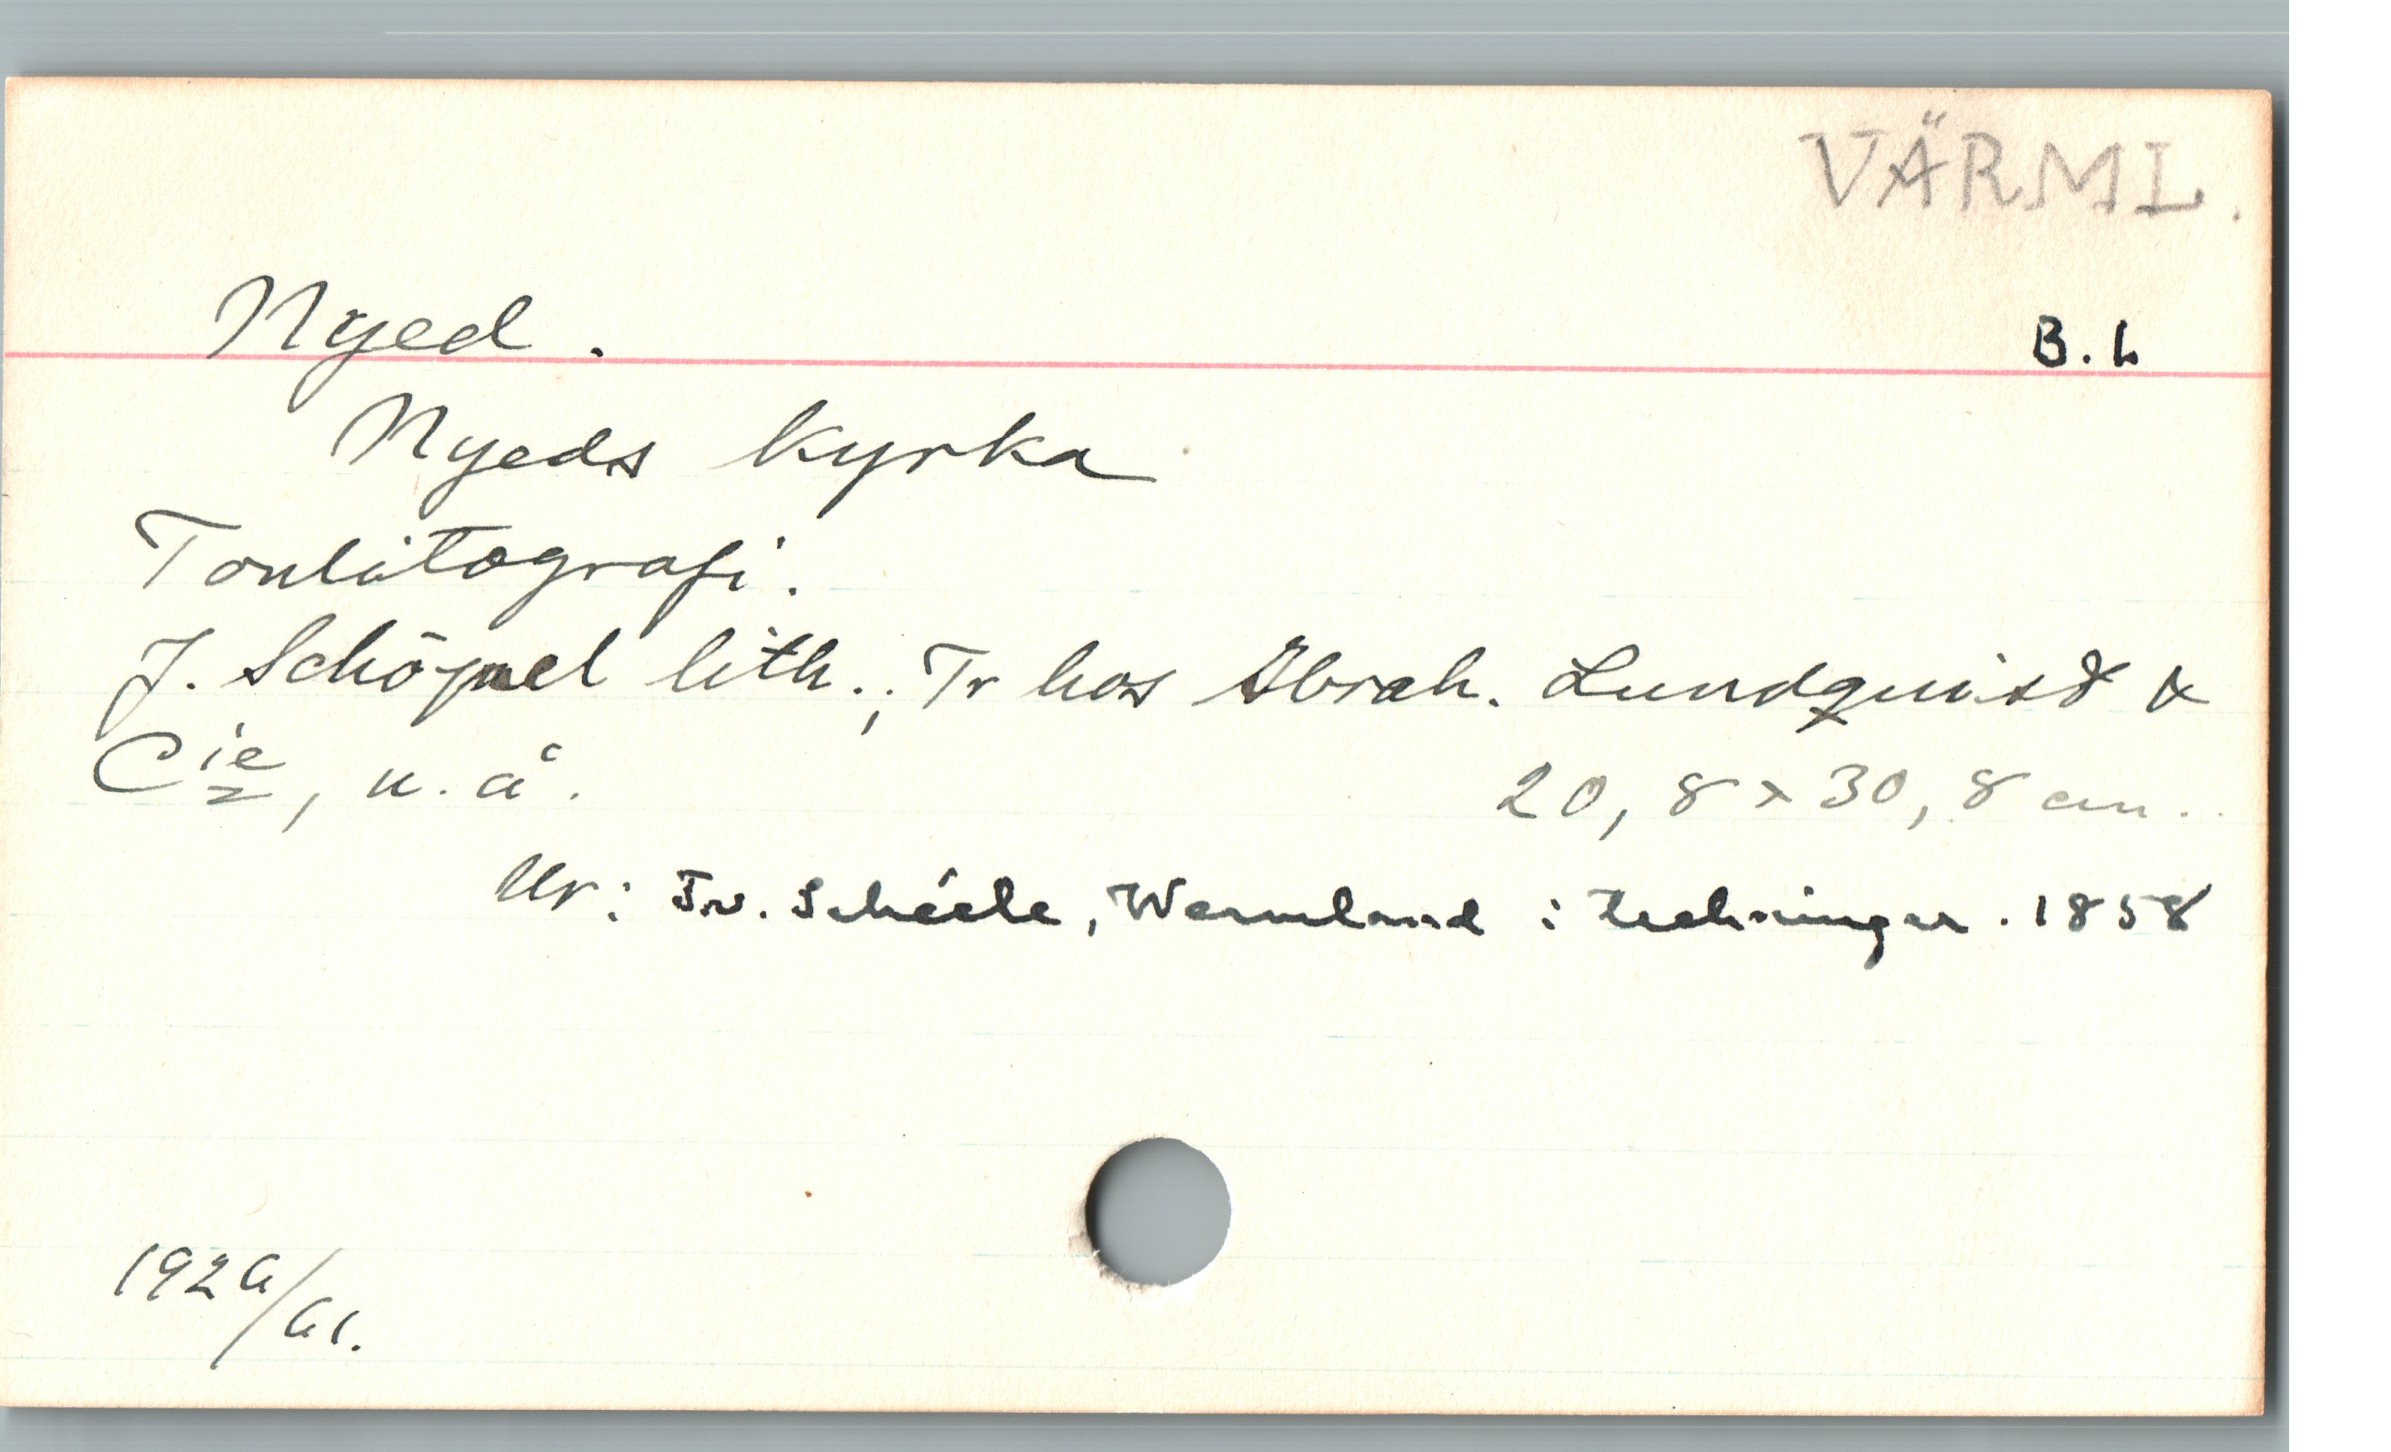 VÄRML.
Nyed.
B. L
Nyeds kyrka
Tonlitografi.
J. Schöpnel lith.; Tr hos Abrah. Lundquist &
Cie, u. å.
20,8 x 30,8 cm.
Ur: F.v. Schéele, Wermland i teckningar. 1858
1926/61.